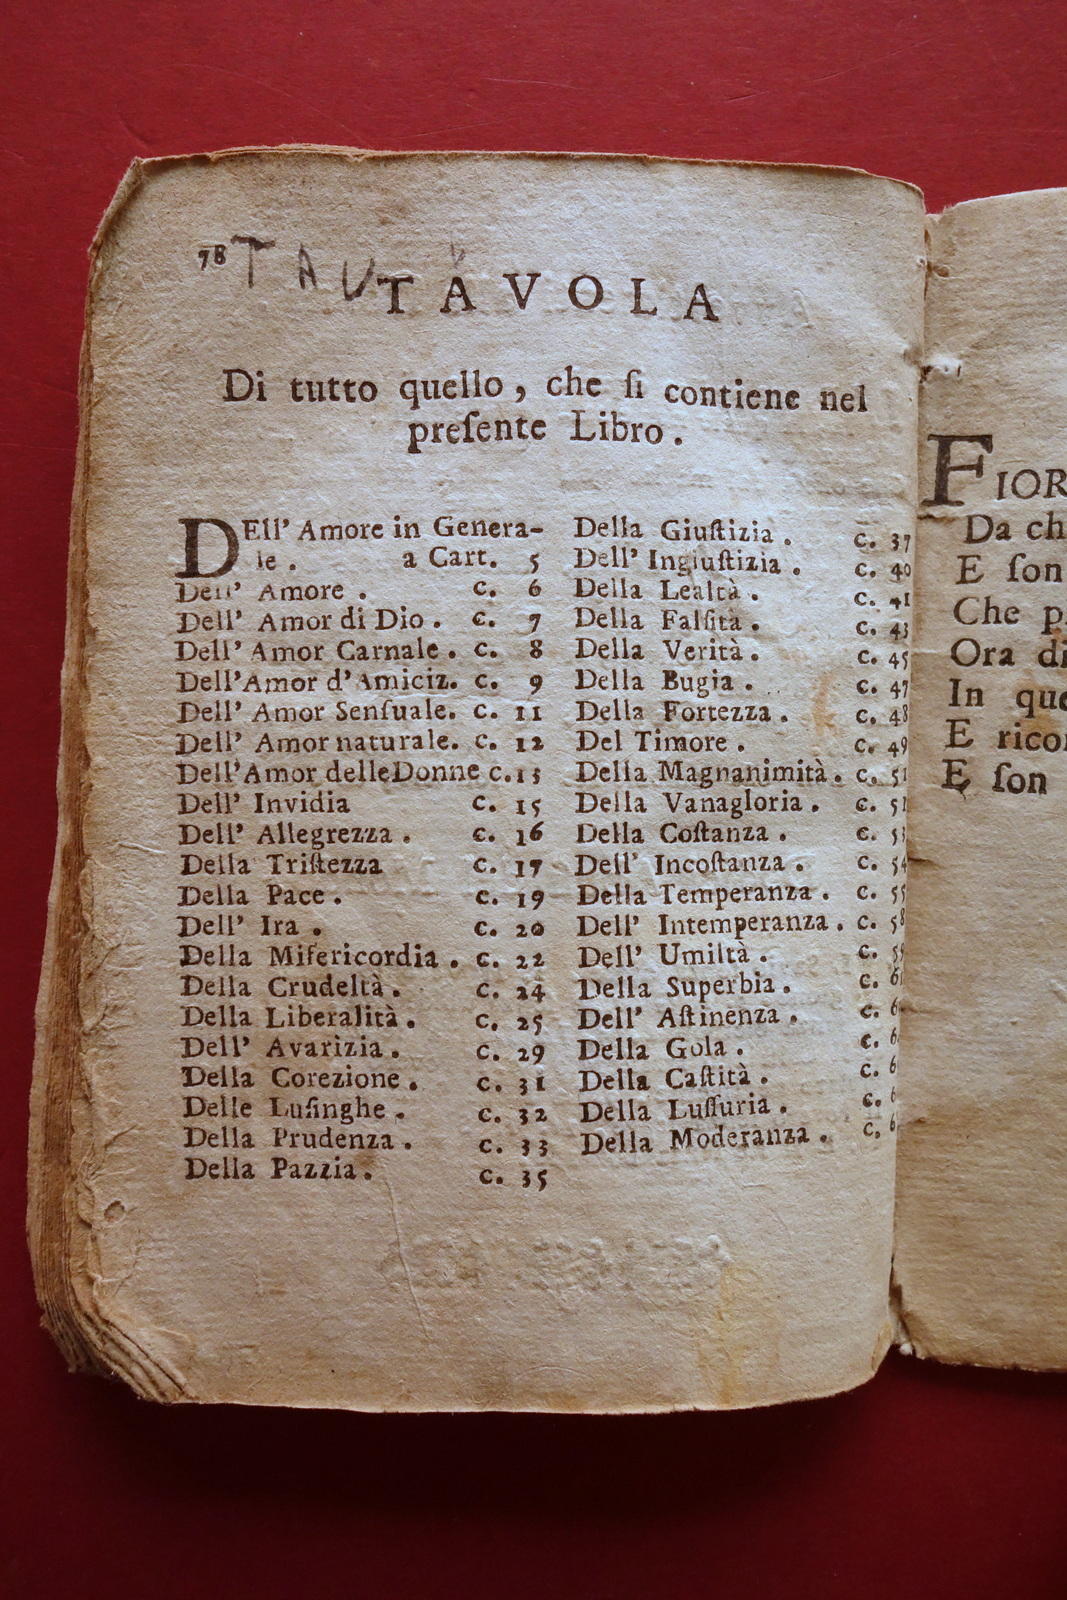 78
TAU
TAVOLA
Di tutto quello, che ſi contiene nel
preſente Libro.
DEll' Amore in Genera-
le. a Cart. 5
Dell' Amore. c. 6
Dell' Amor di Dio. c. 7
Dell' Amor Carnale. c. 8
Dell'Amor d'Amiciz. c. 9
Dell' Amor Senſuale. c. 11
Dell' Amor naturale. c. 12
Dell'Amor delleDonne c. 13
Dell' Invidia c. 15
Dell' Allegrezza. c. 16
Della Triſtezza c. 17
Della Pace. c. 19
Dell' Ira. c. 20
Della Miſericordia. c. 22
Della Crudeltà. c. 24
Della Liberalità. c. 25
Dell' Avarizia. c. 29
Della Corezione. c. 31
Delle Luſinghe. c. 32
Della Prudenza. c. 33
Della Pazzia. c. 35
Della Giuſtizia. c. 37
Dell' Ingiuſtizia. c. 40
Della Lealtà. c. 41
Della Falſità. c. 43
Della Verità. c. 45
Della Bugia. c. 47
Della Fortezza. c. 48
Del Timore. c. 49
Della Magnanimità. c. 51
Della Vanagloria. c.
Della Coſtanza. c. 53
Dell' Incoſtanza. c. 54
Della Temperanza. c. 55
Dell' Intemperanza. c. 58
Dell' Umiltà. c. 59
Della Superbia. c.
Dell' Aſtinenza. c.
Della Gola. c.
Della Caſtità. c.
Della Luſſuria. c.
Della Moderanza. c.
FIOR
Da ch
E ſon
Che p
Ora di
In que
E rico
E ſon